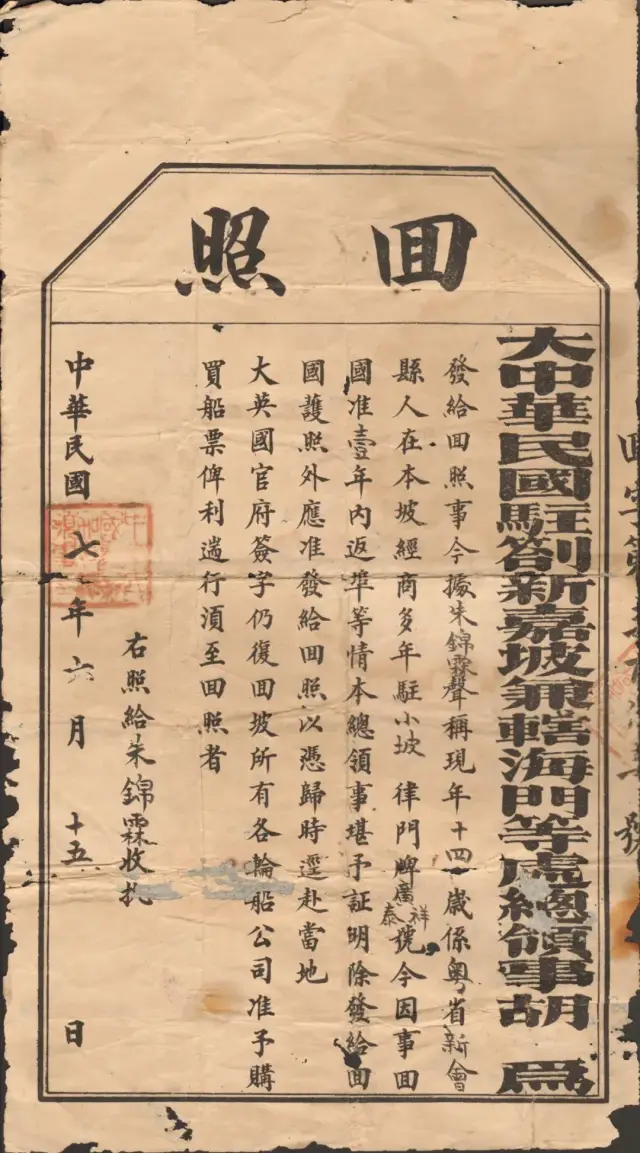 回照
大中華民國駐劄新嘉坡兼轄海門等處總領事胡 爲
發給回照事今據朱錦霖聲稱現年十四歲係粵省新會
縣人在本坡經商多年駐小坡 律門牌廣祥泰號今因事回
國准壹年內返埠等情本總領事堪予証明除發給回
國護照外應准發給回照以憑歸時逕赴當地
大英國官府簽字仍復回坡所有各輪船公司准予購
買船票俾利遄行湏至回照者
右照給朱錦霖收扎
中華民國七年六月十五日